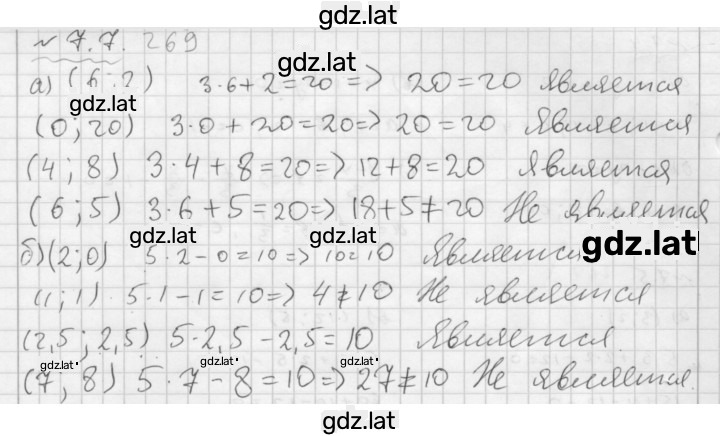 gdz.lat
№ 7.7. 269
а) (6; 2) 3·6+2=20 => 20=20 Является
gdz.lat
gdz.lat
(0; 20) 3·0+20=20=> 20=20 Является
(4; 8) 3·4+8=20=> 12+8=20 Является
(6; 5) 3·6+5=20=> 18+5≠20 Не является
gdz.lat gdz.lat gdz.lat
б) (2; 0) 5·2-0=10=> 10=10 Является
(1; 1) 5·1-1=10=> 4≠10 Не является
(2,5; 2,5) 5·2,5-2,5=10 Является.
gdz.lat gdz.lat gdz.lat
(7; 8) 5·7-8=10=> 27≠10 Не является.
gdz.lat